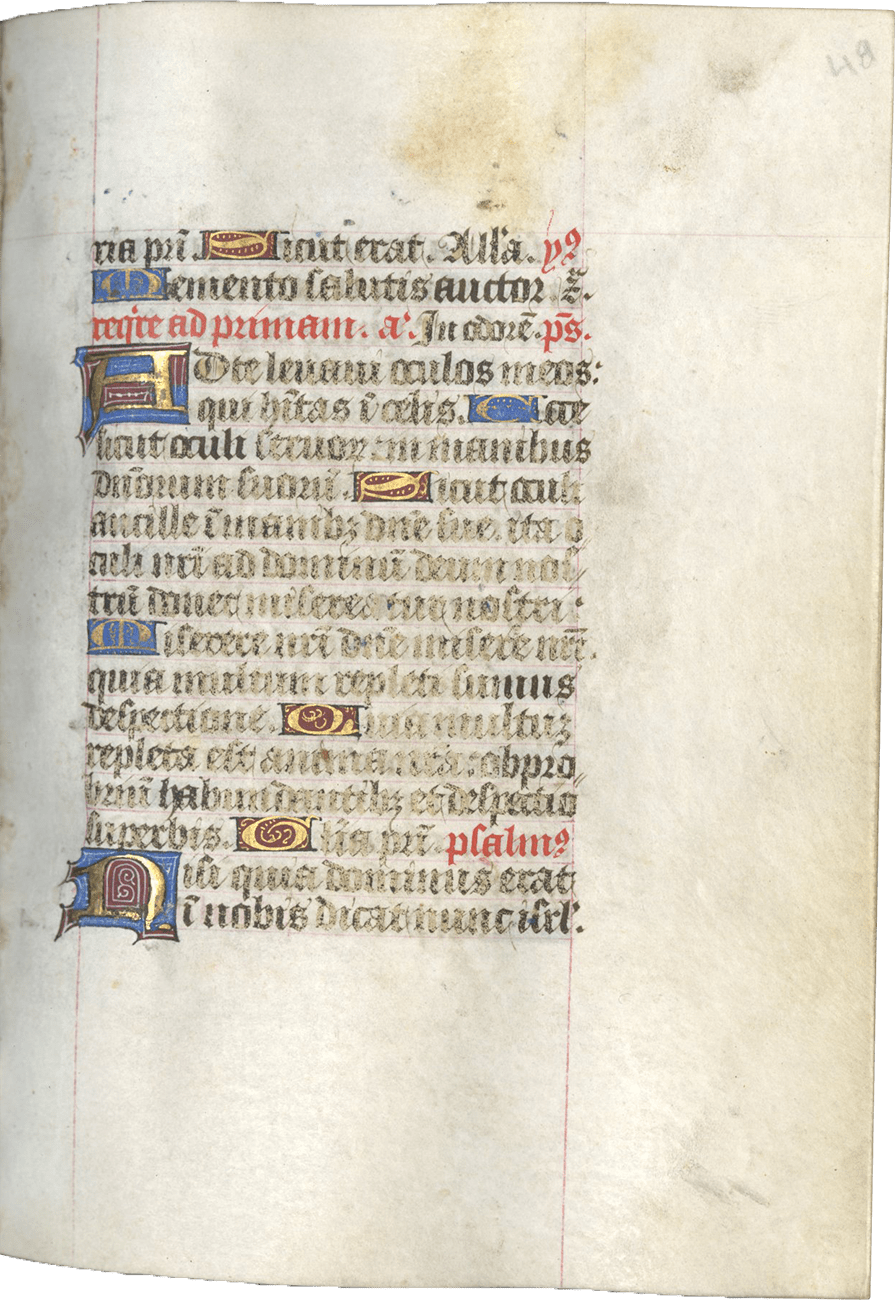 48
ria pri̅. Sicut erat. All'a. yꝰ
Memento salutis auctor. ⁊̅.
req̅re ad primam. a̅. In odore̅. ps̅.
AD te levavi oculos meos:
qui hi̅tas i̅ celis. Ecce
sicut oculi servoꝝ: in manibus
dn̅orum suoru̅. Sicut oculi
ancille i̅ manibꝫ dn̅e sue. ita o
culi nr̅i ad dominu̅ deum nos⸗
tru̅ donec misereatur nostri:
Miserere nr̅i dn̅e misere̅e nr̅i.
quia multum repleti sumus
despectione. Quia multuꝫ
repleta est anima nr̅a: obpro⸗
briu̅ habundantibꝫ et despectio
superbis. Glia pri̅. psalmꝰ
Nisi quia dominus erat
i̅ nobis dicat nunc isrl'.